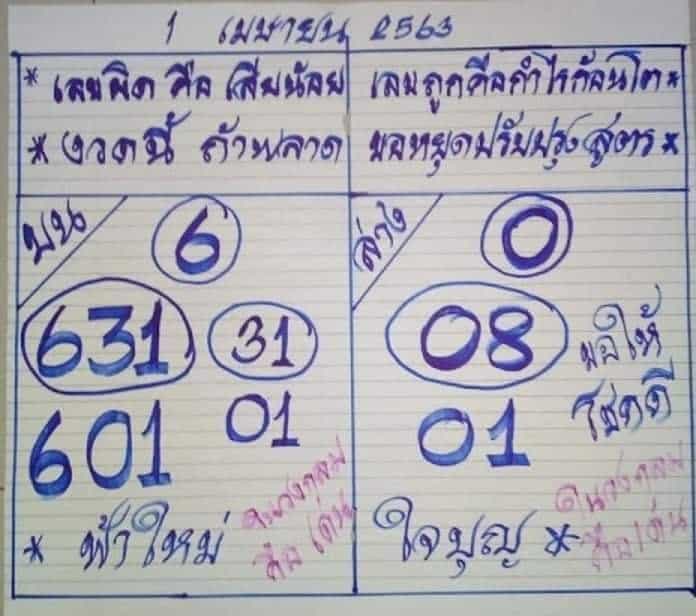 1 เมษายน 2563
* เลขผิด คือ เสียน้อย
* งวดนี้ ถ้าพลาด
เลขถูกคือกำไรก้อนโต *
ขอหยุดปรับปรุงสูตร *
บน
6
631 31
601 01
* ฟ้าใหม่
คือ เด่น
ล่าง
0
08
01
ขอให้
โชคดี
ใจบุญ *
คือเด่น